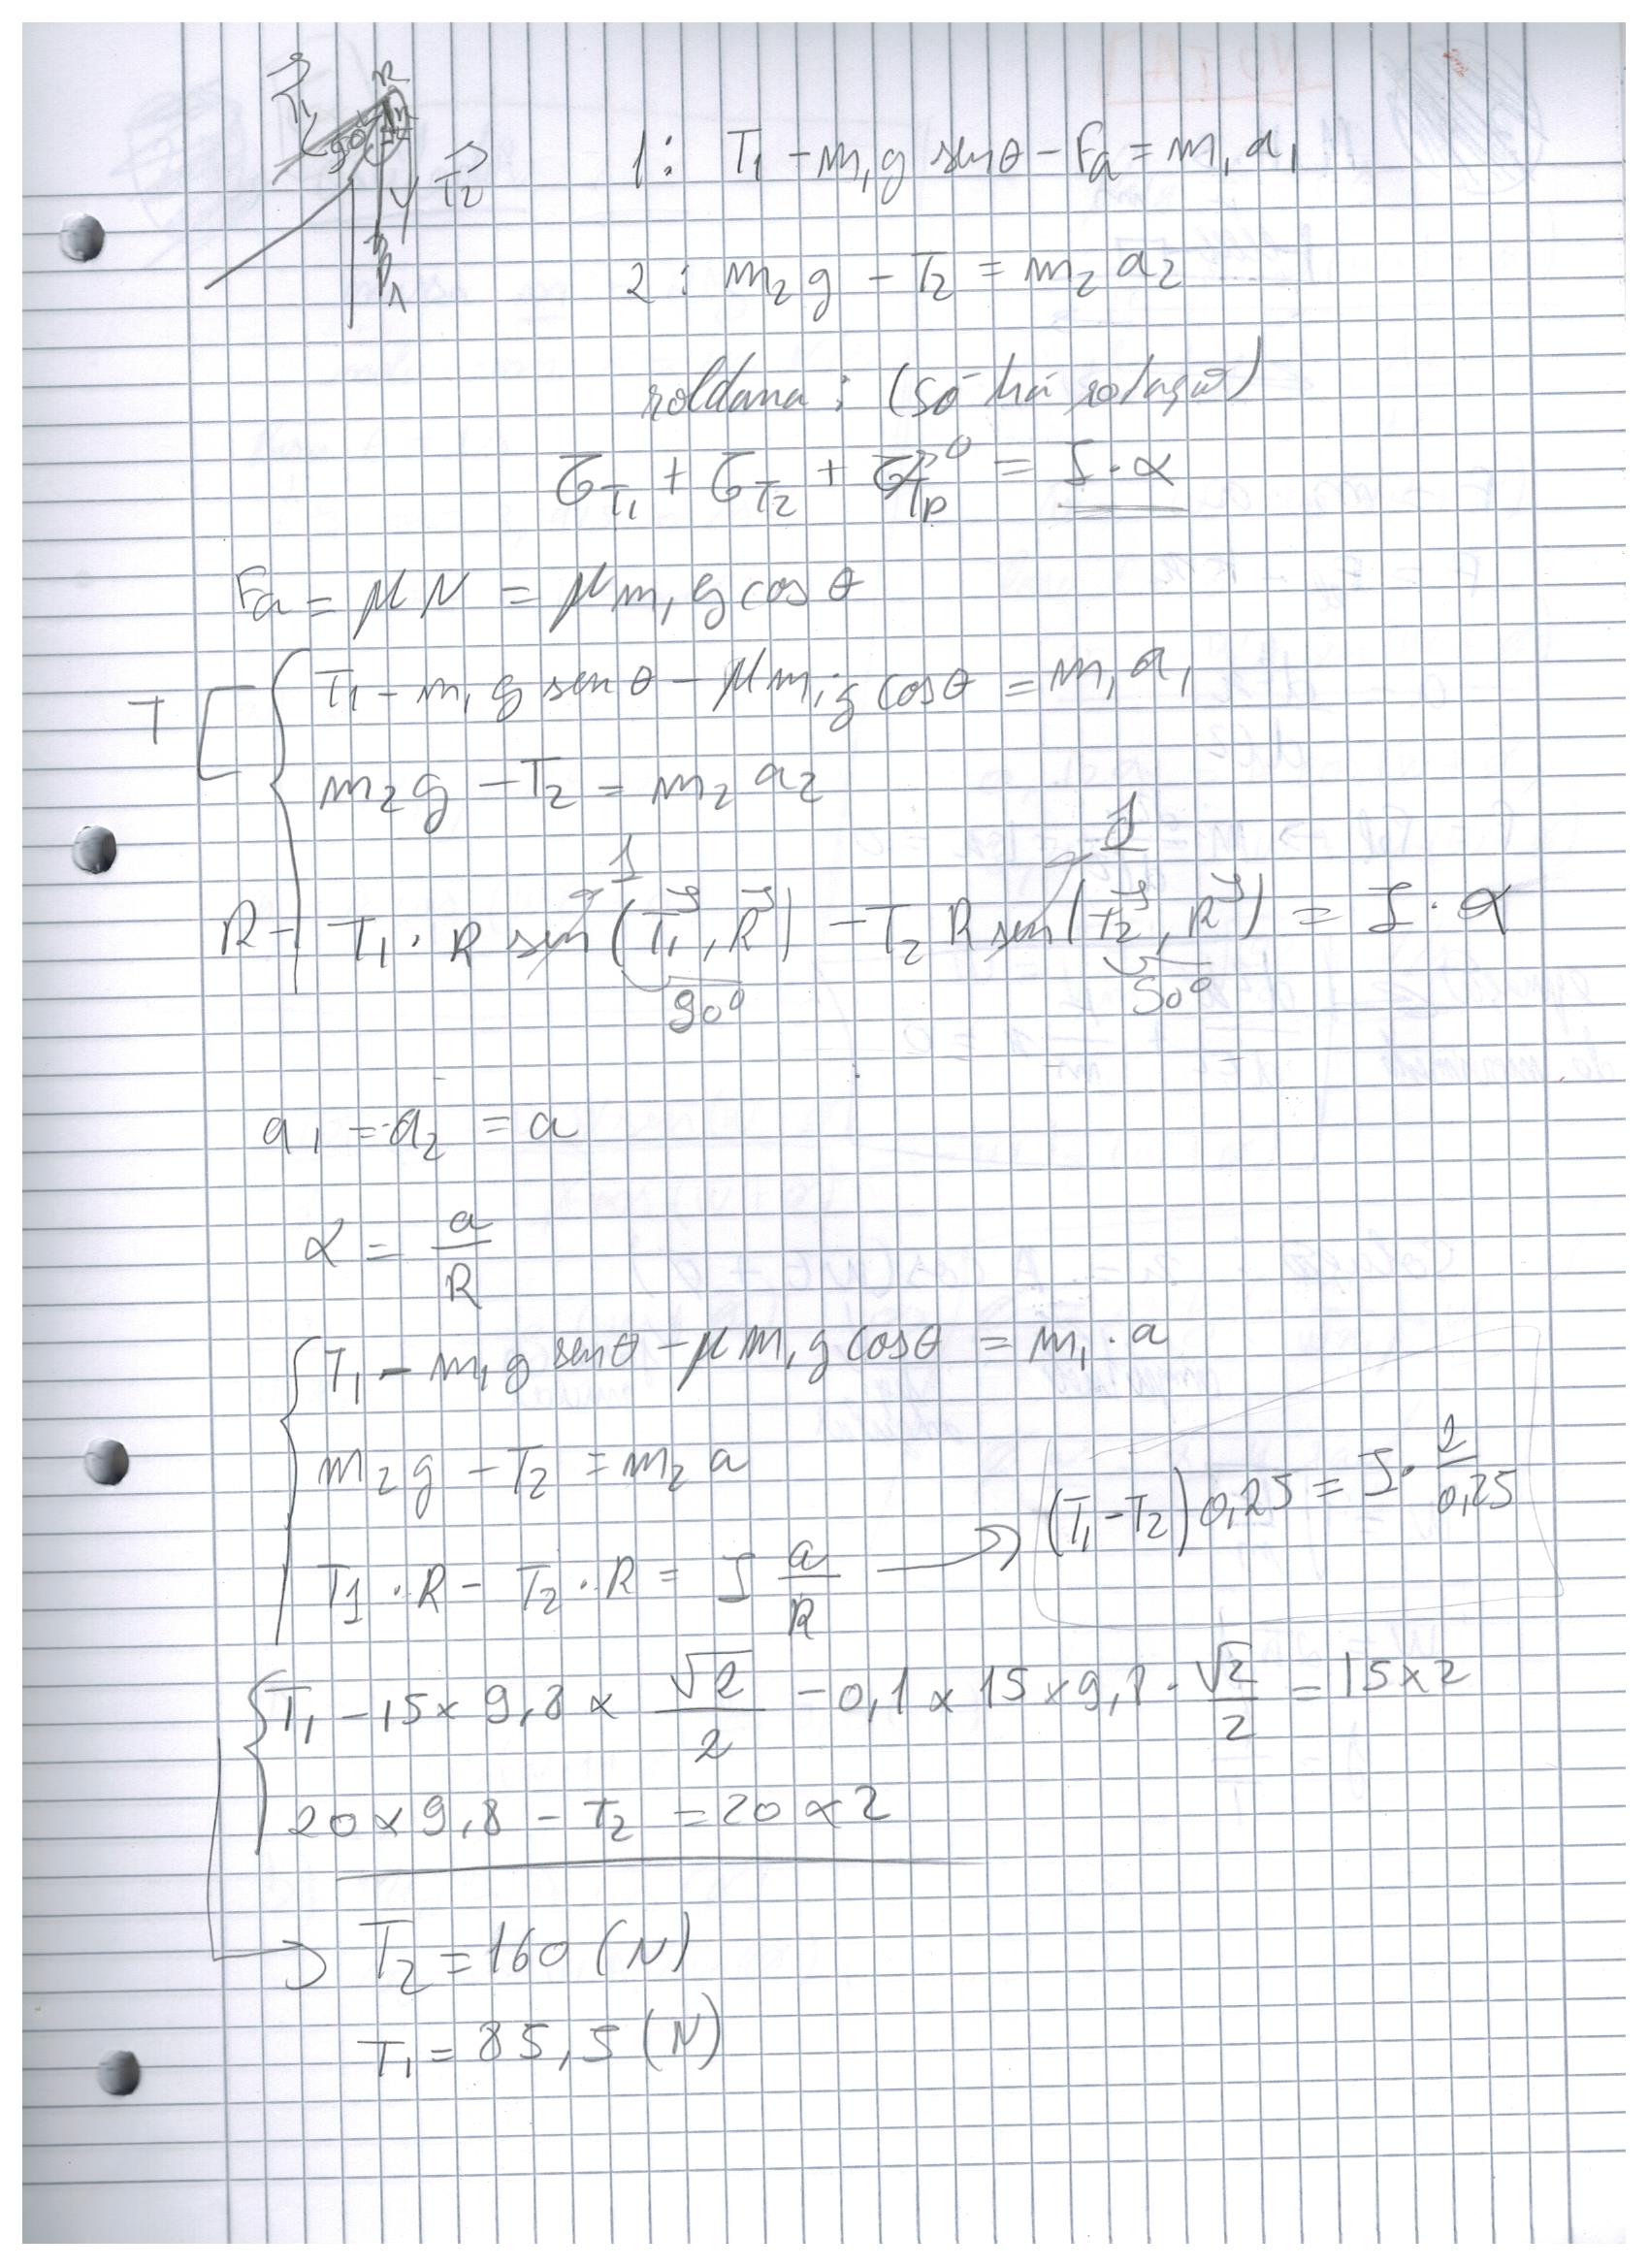 T₁ 90° R
T₂
1: T₁ - m₁g senθ - Fa = m₁a₁
2: m₂g - T₂ = m₂a₂
roldana: (só há rotação)
τ_T₁ + τ_T₂ + τ_P⁰ = I·α
Fa = μN = μm₁g cosθ
T { T₁ - m₁g senθ - μm₁g cosθ = m₁a₁
m₂g - T₂ = m₂a₂
1 1
R - T₁·R sen(T₁, R) - T₂ R sen(T₂, R) = I·α
90° 90°
a₁ = a₂ = a
α = a/R
T₁ - m₁g senθ - μm₁g cosθ = m₁·a
m₂g - T₂ = m₂a
T₁·R - T₂·R = I a/R → (T₁-T₂)0,25 = I·2/0,25
T₁ - 15×9,8×√2/2 - 0,1×15×9,8·√2/2 = 15×2
20×9,8 - T₂ = 20×2
→ T₂ = 160 (N)
T₁ = 85,5 (N)